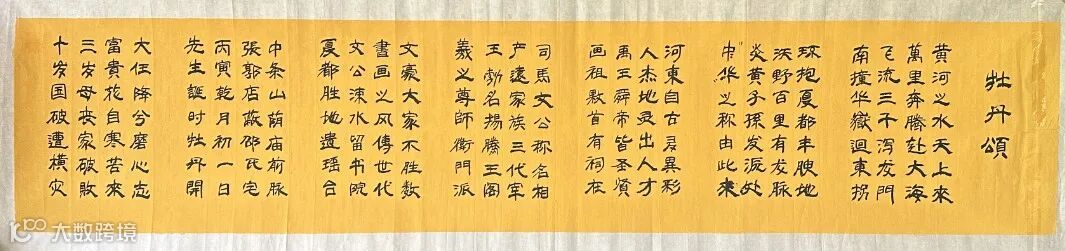 牡丹頌
黄河之水天上来
萬里奔騰赴大海
飞流三千泻龙门
南撞华嶽迴東拐
环抱夏都丰腴地
沃野百里有龙脉
炎黄子孫发源处
中华之称由此来
河東自古異彩
人杰地灵出人才
禹王舜帝皆圣贤
画祖敤首有祠在
司馬文公称名相
遠家族三代宰
王勃名揚滕王阁
義之尊師衛門派
文豪大家不胜数
書画之风傳世代
文公涑水留书院
夏都胜地遗瑶台
中条山荫庙前脉
張郭店蔽邵氏宅
丙寅乾月初一日
先生誕时牡丹開
大任降兮磨心志
富貴花自寒苦来
三岁母丧家破敗
十岁国破遭横灾
大数跨境